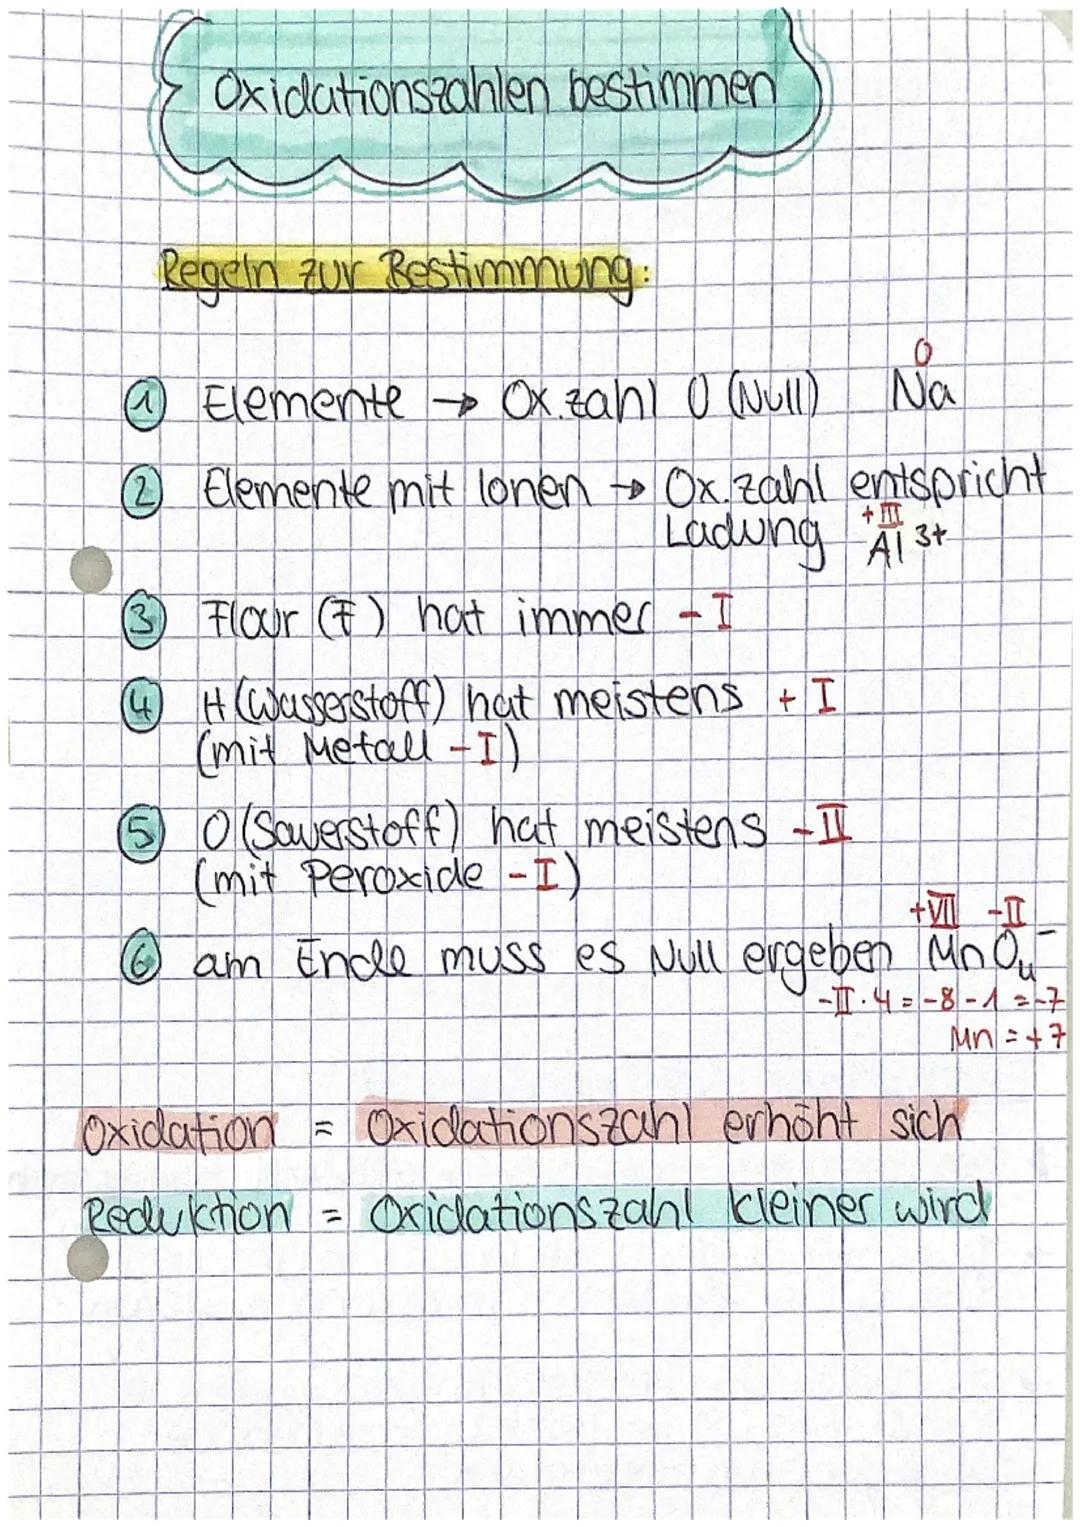 Oxidationszahlen bestimmen
Regeln zur Bestimmung:
0
① Elemente → Ox.zahl 0 (Null) Na
② Elemente mit Ionen → Ox.zahl entspricht
Ladung +III
Al 3+
③ Flour (F) hat immer -I
④ H (Wasserstoff) hat meistens + I
(mit Metall -I)
⑤ O (Sauerstoff) hat meistens -II
(mit Peroxide -I)
+VII -II
⑥ am Ende muss es Null ergeben MnO₄⁻
-II·4 = -8 -1 = -7
Mn = +7
Oxidation = Oxidationszahl erhöht sich
Reduktion = Oxidationszahl kleiner wird